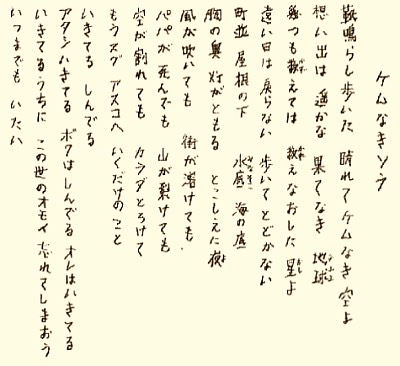 ケムなきソラ
靴鳴らし歩いた 晴れてケムなき空よ
想い出は 遥かな 果てなき 地球
幾つも数えては 数えなおした 星よ
遠い日は 戻らない 歩いてとどかない
町並 屋根の下 水底 海の底
胸の奥 灯がともる とこしえに夜
風が吹いても 街が溶けても
パパが死んでも 山が裂けても
空が割れても カラダとろけて
もうスグ アスコへ いくだけのこと
いきてる しんでる
アタシいきてる ボクはしんでる オレはいきてる
いきてるうちに この世のオモイ 忘れてしまおう
いつまでも いたい